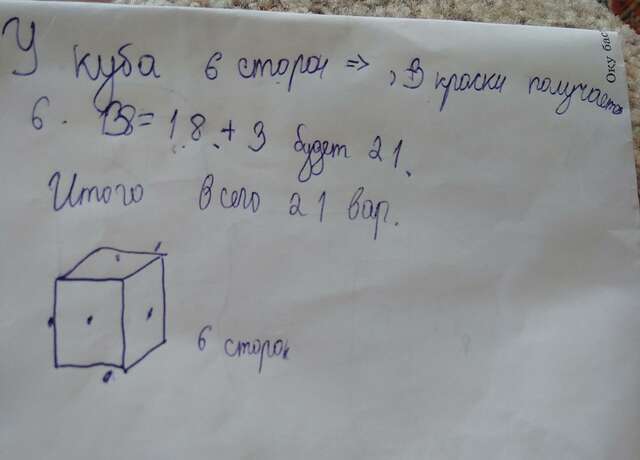 У куба 6 сторон => , 3 краски получается
6 . 3 = 18 + 3 будет 21.
Итого всего 21 вар.
6 сторон
Оку бас